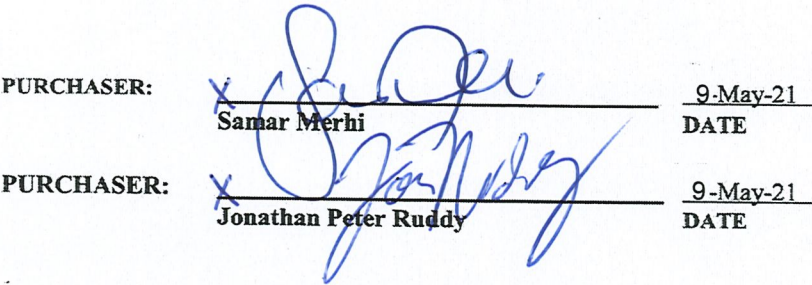 PURCHASER: X 9-May-21
Samar Merhi DATE
PURCHASER: X 9-May-21
Jonathan Peter Ruddy DATE